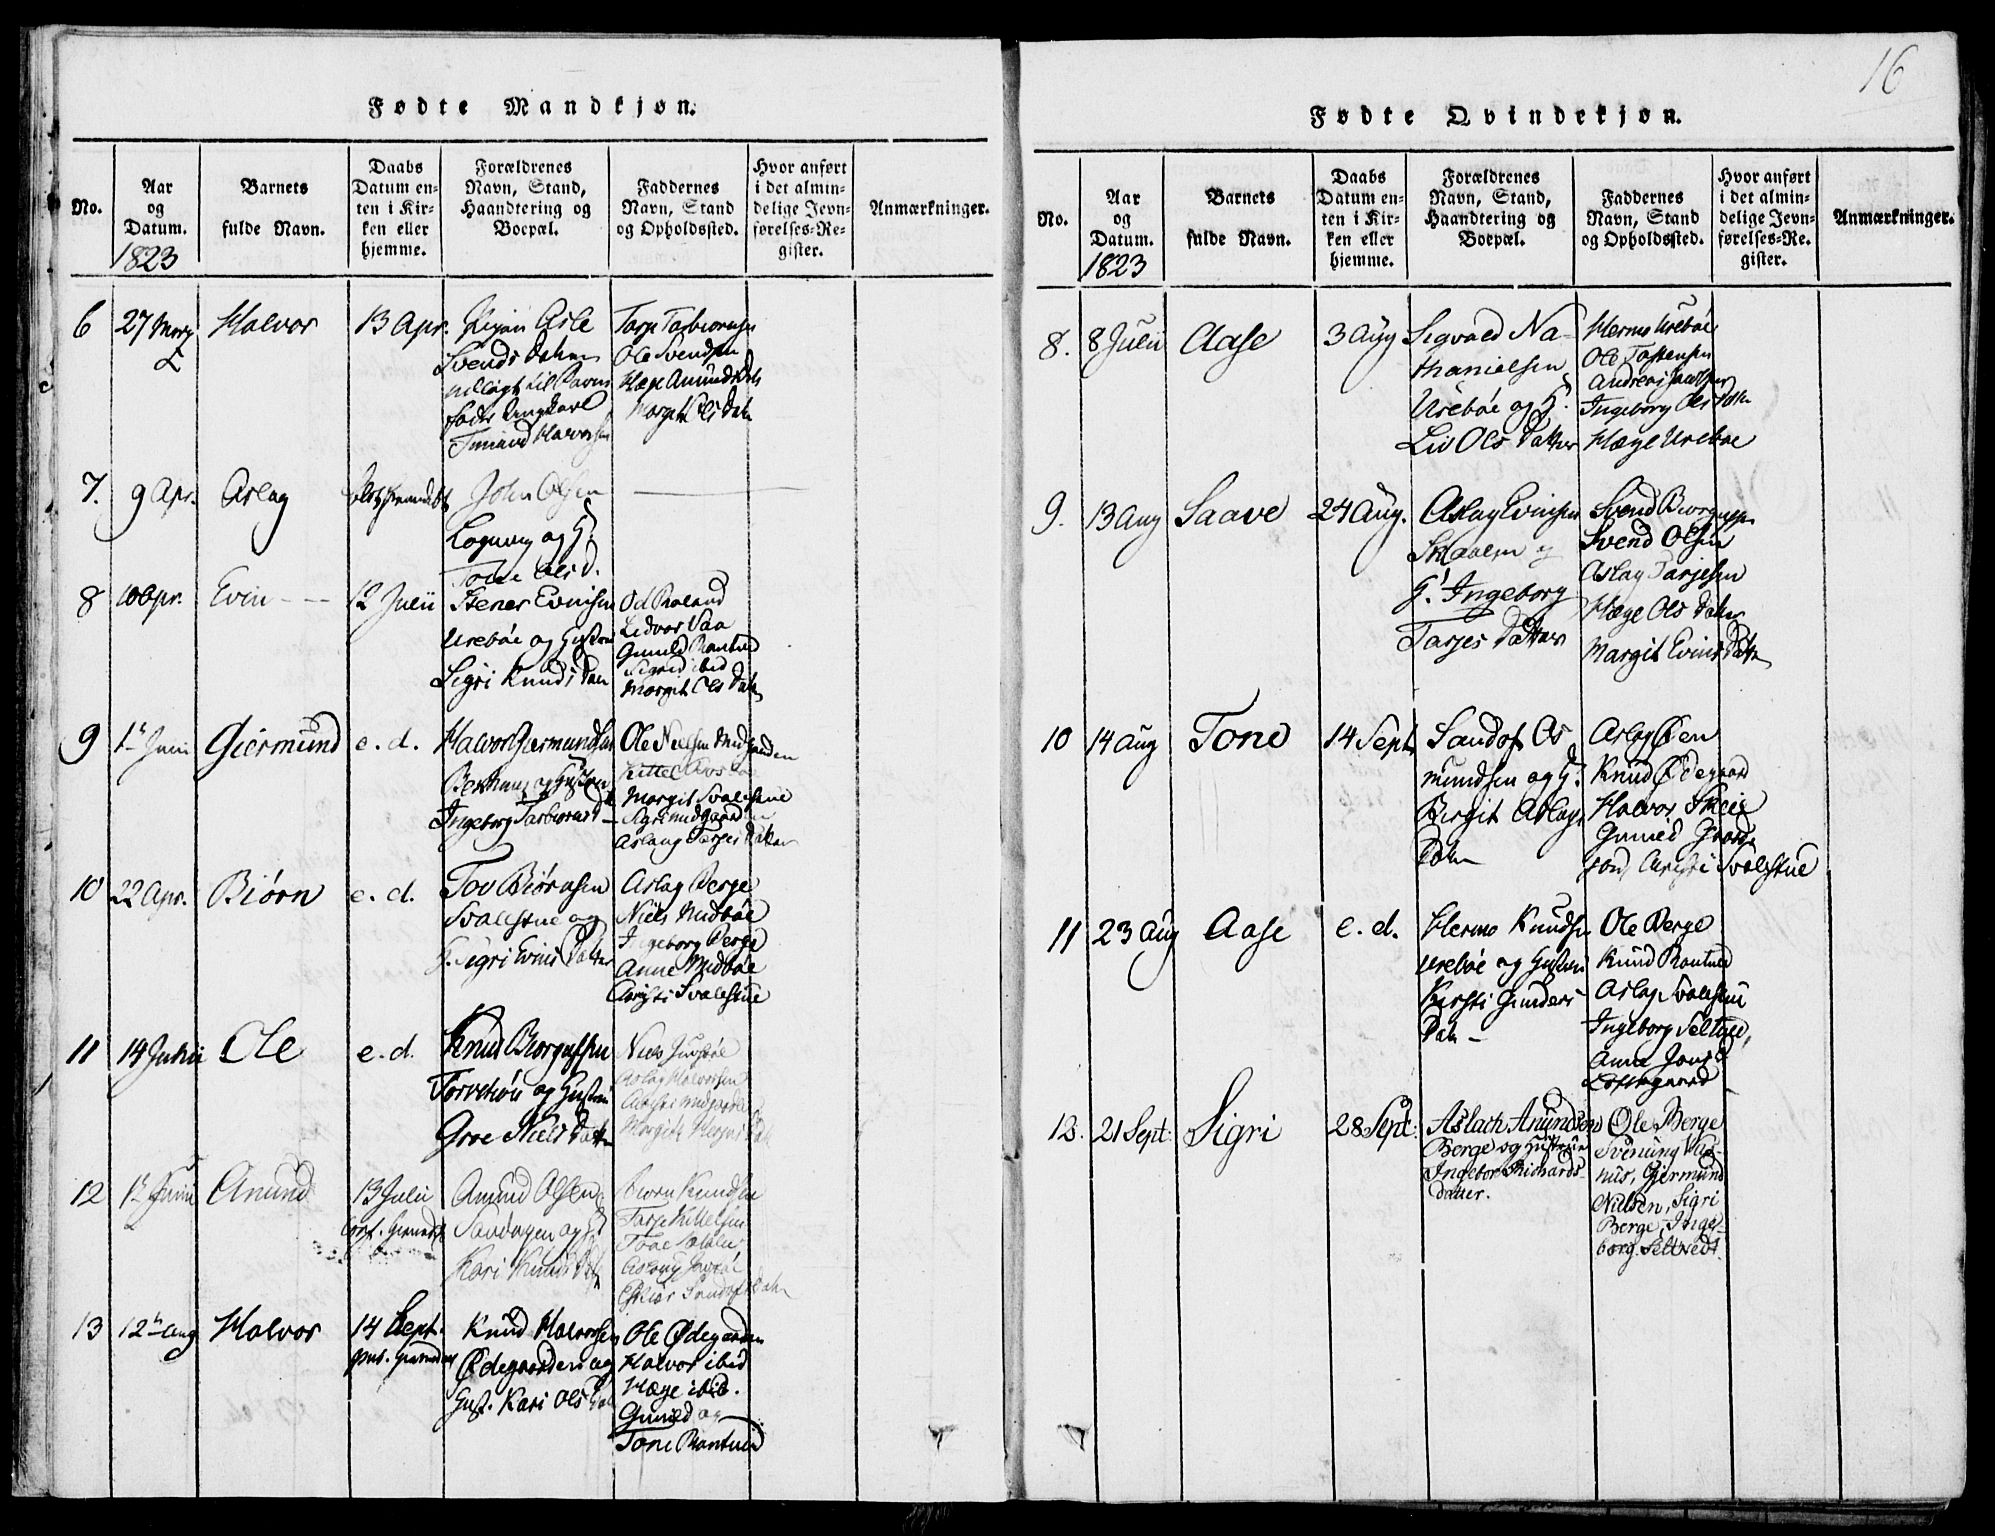 Fødte Mandkjøn.
No.
Aar
og
Datum.
1823
Barnets
fulde Navn.
Daabs
Datum en-
ten i Kir-
ken eller
hjemme.
Forældrenes
Navn, Stand,
Haandtering og
Boepæl.
Faddernes
Navn, Stand
og Opholdssted.
Hvor anført
i det almin-
delige Jevn-
førelses-Re-
gister.
Anmærkninger.
6
27 Marz
Halvor
13 Apr.
Pigen Asle
Svends Datter
udlagt til Barne
fader Ungkarl
Halvorsen
Tarje Tarbiørnsen
Ole Svendsen
Hæge Amunds
Margit Ols Datter
7.
9 Apr.
Aslag
John Olsen
og H.
Tone Ols D.
8
10 Apr.
Evin
12 Julii
Stener Evinsen
Urebøe og Hustrue
Sigri Knuds Datter
Od
Ledvor Vaa
Gunild
Sigrid ibid
Margit Ols Datter
9
1 Juni
Giermund
e. d.
Halvor Giermundsen
og Hustrue
Ingeborg Tarbiørns D
Ole Nielsen Midgaarden
Kittel
Margit Svalestue
Sigri Midgaarden
Aslaug Tarjes Datter
10
22 Apr.
Biørn
e. d.
Tov Biørnsen
Svalestue og
H. Sigri Evins Datter
Aslag Berge
Niels Midbøe
Ingeborg Berge
Anne Midbøe
Svalestue
11
14 Junii
Ole
e. d.
Knud Biørgufsen
og Hustrue
Groe Niels Datter
Niels
Aslag Halvorsen
Midgaarde
Margit
12
1 Junii
Amund
13 Julii
Amund Olsen
og H
Kari Knuds Dat
Biørn Knudsen
Tarje Kittelsen
Tone
Aslaug
Sandofs Datter
13
12 Aug
Halvor
14 Sept.
Knud Halvorsen
Ødegaarden og
Hust. Kari Ols Dat
Ole Ødegaarden
Halvor ibid
Hæge ibid.
Gunild og
Tone
16
Fødte Qvindekjøn.
No.
Aar
og
Datum.
1823
Barnets
fulde Navn.
Daabs
Datum en-
ten i Kir-
ken eller
hjemme.
Forældrenes
Navn, Stand,
Haandtering og
Boepæl.
Faddernes
Navn, Stand
og Opholdssted.
Hvor anført
i det almin-
delige Jevn-
førelses-Re-
gister.
Anmærkninger.
8.
8 Julii
Aase
3 Aug
Sigvald Na-
thanielsen
Urebøe og H.
Liv Ols Datter
Hermo Urebøe
Ole Tostensen
Andreas Jacobsen
Ingeborg Ols Datter
Hæge Urebøe
9.
13 Aug
Saave
24 Aug.
Aslag Evinsen
og
H. Ingeborg
Tarjes Datter
Svend Biørgufsen
Svend Olsen
Aslag Tarjesen
Hæge Ols Datter
Margit Evins Datter
10
14 Aug
Tone
14 Sept
Sandof Os
mundsen og H.
Birgit Aslags
Datter
Aslag Øen
Knud Ødegaard
Halvor Skeie
Gunild
Svalestue
11
23 Aug
Aase
e. d.
Hermo Knudsen
Urebøe og Hustrue
Kirsti Gunders
Datter
Ole Berge
Knud
Aslag Svalestue
Ingeborg Seltvedt,
Anne Jons D
Loftsgaard
12.
21 Sept.
Sigri
28 Sept.
Aslach Amundsen
Berge og Hustrue
Ingebor Richards-
datter.
Ole Berge
Svenung Mag-
nus, Gjermund
Nielsen, Sigri
Berge, Inge-
borg Seltvedt.